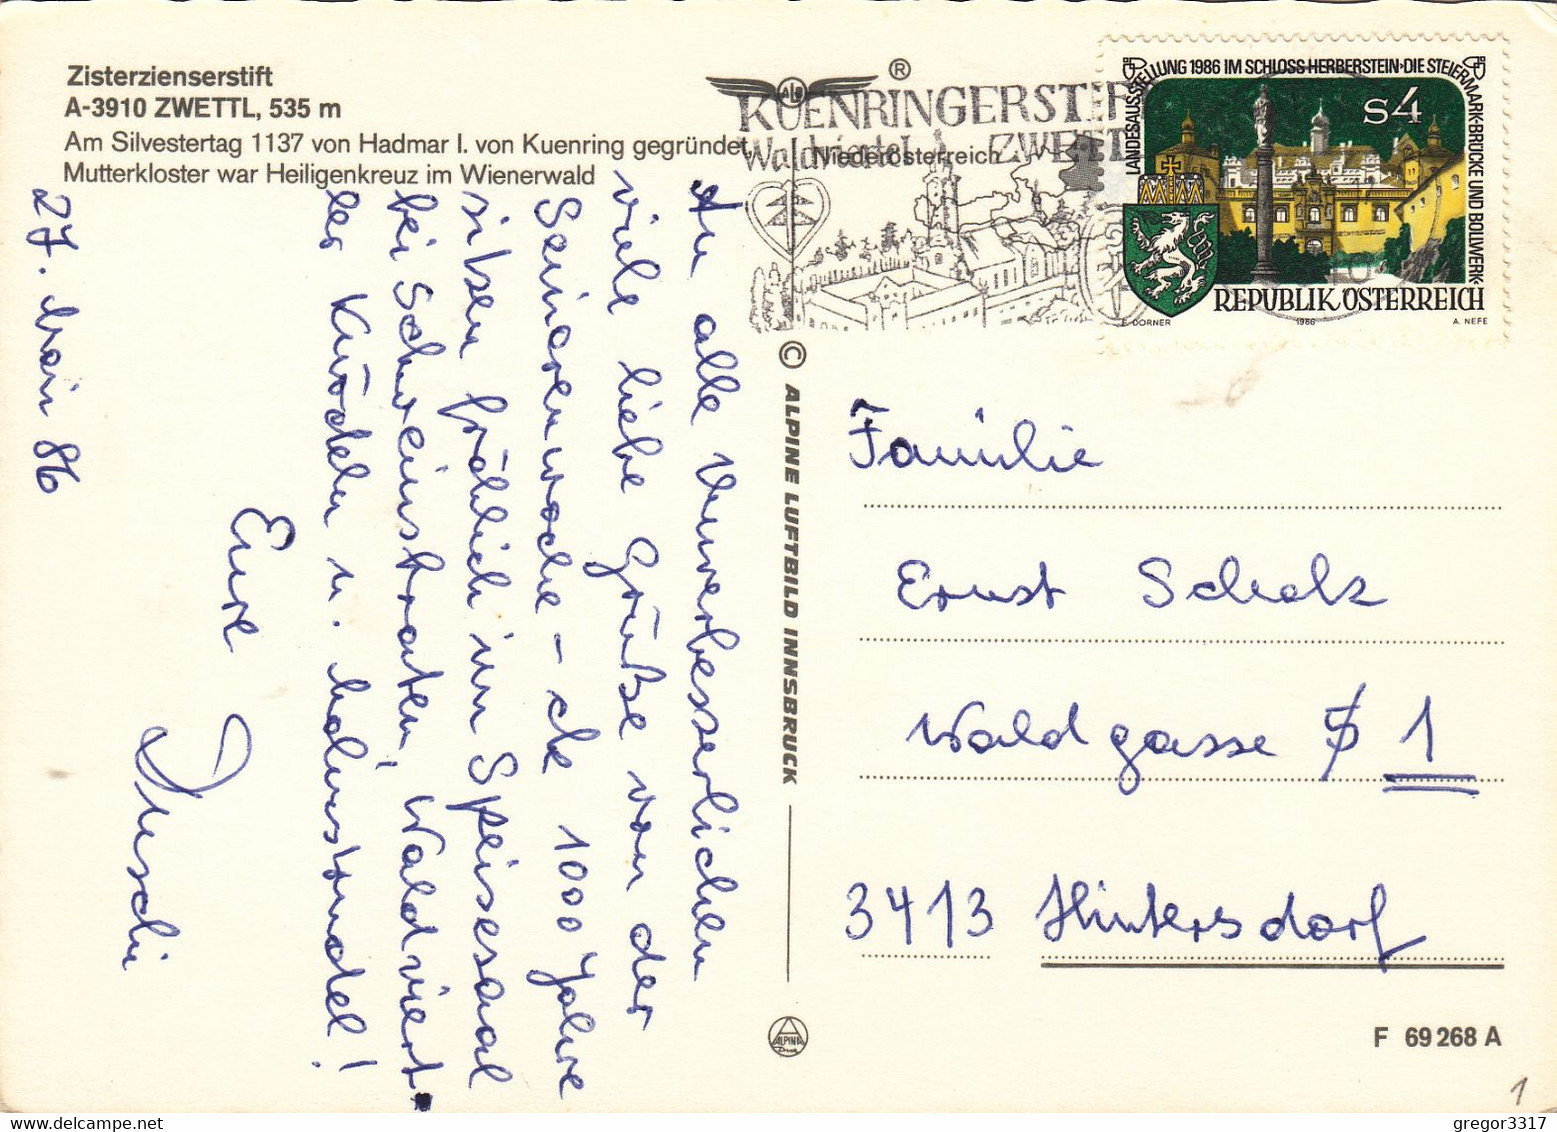 Zisterzienserstift
A-3910 ZWETTL, 535 m
Am Silvestertag 1137 von Hadmar I. von Kuenring gegründet, Niederösterreich
Mutterkloster war Heiligenkreuz im Wienerwald
ALB
®
KUENRINGERST
Waldviertel ZWETT
LANDESAUSSTELLUNG 1986 IM SCHLOSS HERBERSTEIN·DIE STEIERMARK·BRÜCKE UND BOLLWERK
S4
REPUBLIK ÖSTERREICH
E. DORNER 1986 A. NEFE
27. Mai 86
An alle Unverbesserlichen
viele liebe Grüße von der
Seniorenwoche – ck 1000 Jahre
sitzen fröhlich im Speisesaal
bei Schweinsbraten, Waldviert.
ler Knödeln u.
Eure
© ALPINE LUFTBILD INNSBRUCK
Familie
Ernst Scholz
Waldgasse 1
3413 Hintersdorf
ALPINA
Druck
F 69 268 A
1
gregor3317